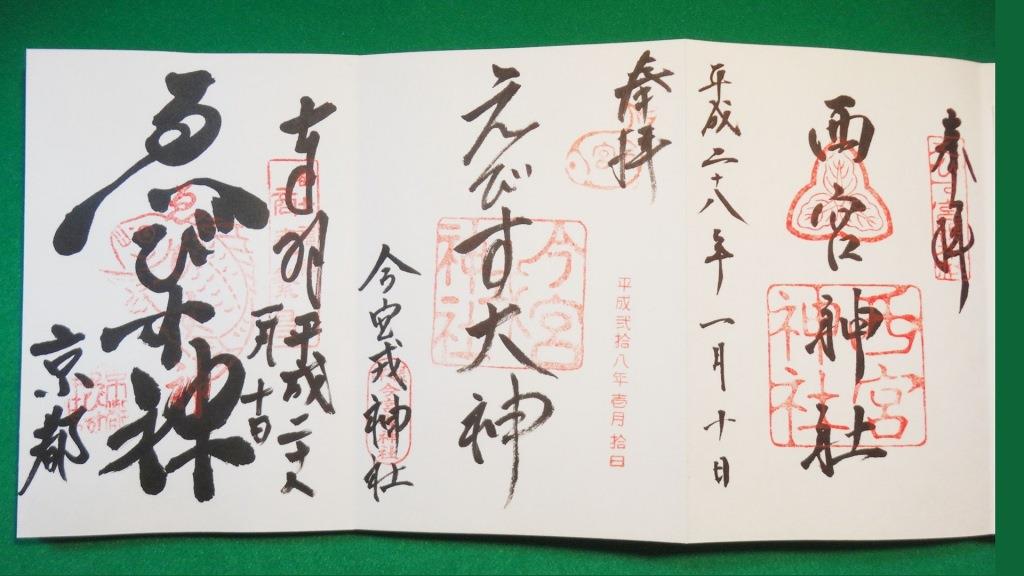 奉拝
西宮神社
西宮神社
平成二十八年一月十日
奉拝
宮
えびす大神
今宮神社
平成弐拾八年壱月拾日
今宮戎神社
奉拝
平成二十八
一月十日
ゑびす神
ゑ
京都